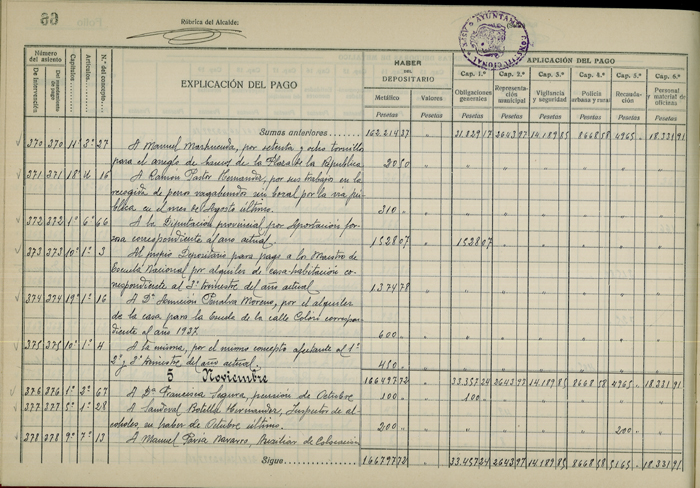 66
Rúbrica del Alcalde:
AYUNTAMIENTO CONSTITUCIONAL
Número del asiento
De Intervención
Del mandamiento de pago
Capítulos
Artículos
N.º del concepto
EXPLICACIÓN DEL PAGO
HABER DEL DEPOSITARIO
Metálico Valores
Pesetas Pesetas
APLICACIÓN DEL PAGO
Cap. 1.º Cap. 2.º Cap. 3.º Cap. 4.º Cap. 5.º Cap. 6.º
Obligaciones generales
Representación municipal
Vigilancia y seguridad
Policía urbana y rural
Recaudación
Personal y material de oficinas
Pesetas Pesetas Pesetas Pesetas Pesetas Pesetas
Sumas anteriores 162.214 37 " 31.829 17 2643 97 14.189 85 8668 58 4965 " 18.331 91
370 370 11º 3º 27 A Manuel por setenta y ocho tornillos
para el arreglo de bancos de la Plaza de la República 20 50
371 371 18º 4 16 A Ramón Pastor Hernández, por sus trabajos en la
recogida de perros vagabundos sin bozal por la vía pú-
blica en el mes de Agosto último. 310 "
372 372 1º 6º 66 A la Diputación provincial por Aportación for-
zosa correspondiente al año actual. 1528 07 1528 07
373 373 10º 1º 3 Al propio Depositario para pago a los Maestros de
Escuela Nacional por alquiler de casa-habitación co-
rrespondiente al 3º trimestre del año actual 1374 78
374 374 19º 1º 16 A Dª Asunción Peralva Moreno, por el alquiler
de la casa para la de la calle Colón correspon-
diente al año 1937. 600 "
375 375 10º 1º 4 A la misma, por el mismo concepto afectante al 1º
2º y 3º trimestre, del año actual. 450 "
5 Noviembre 166497 72 " 33.357 24 2643 97 14.189 85 8668 58 4965 " 18.331 91
376 376 1º 3º 67 A Dª Francisca Segura, pensión de Octubre 100 " 100 "
377 377 5º 1º 28 A Sandoval Botella Hernández, Inspector de al-
coholes, su haber de Octubre último. 200 " 200 "
378 9º 7º 13 A Manuel Navarro, Auxiliar de Colocación
Sigue 166797 72 " 33.457 24 2643 97 14.189 85 8668 58 5165 " 18.331 91